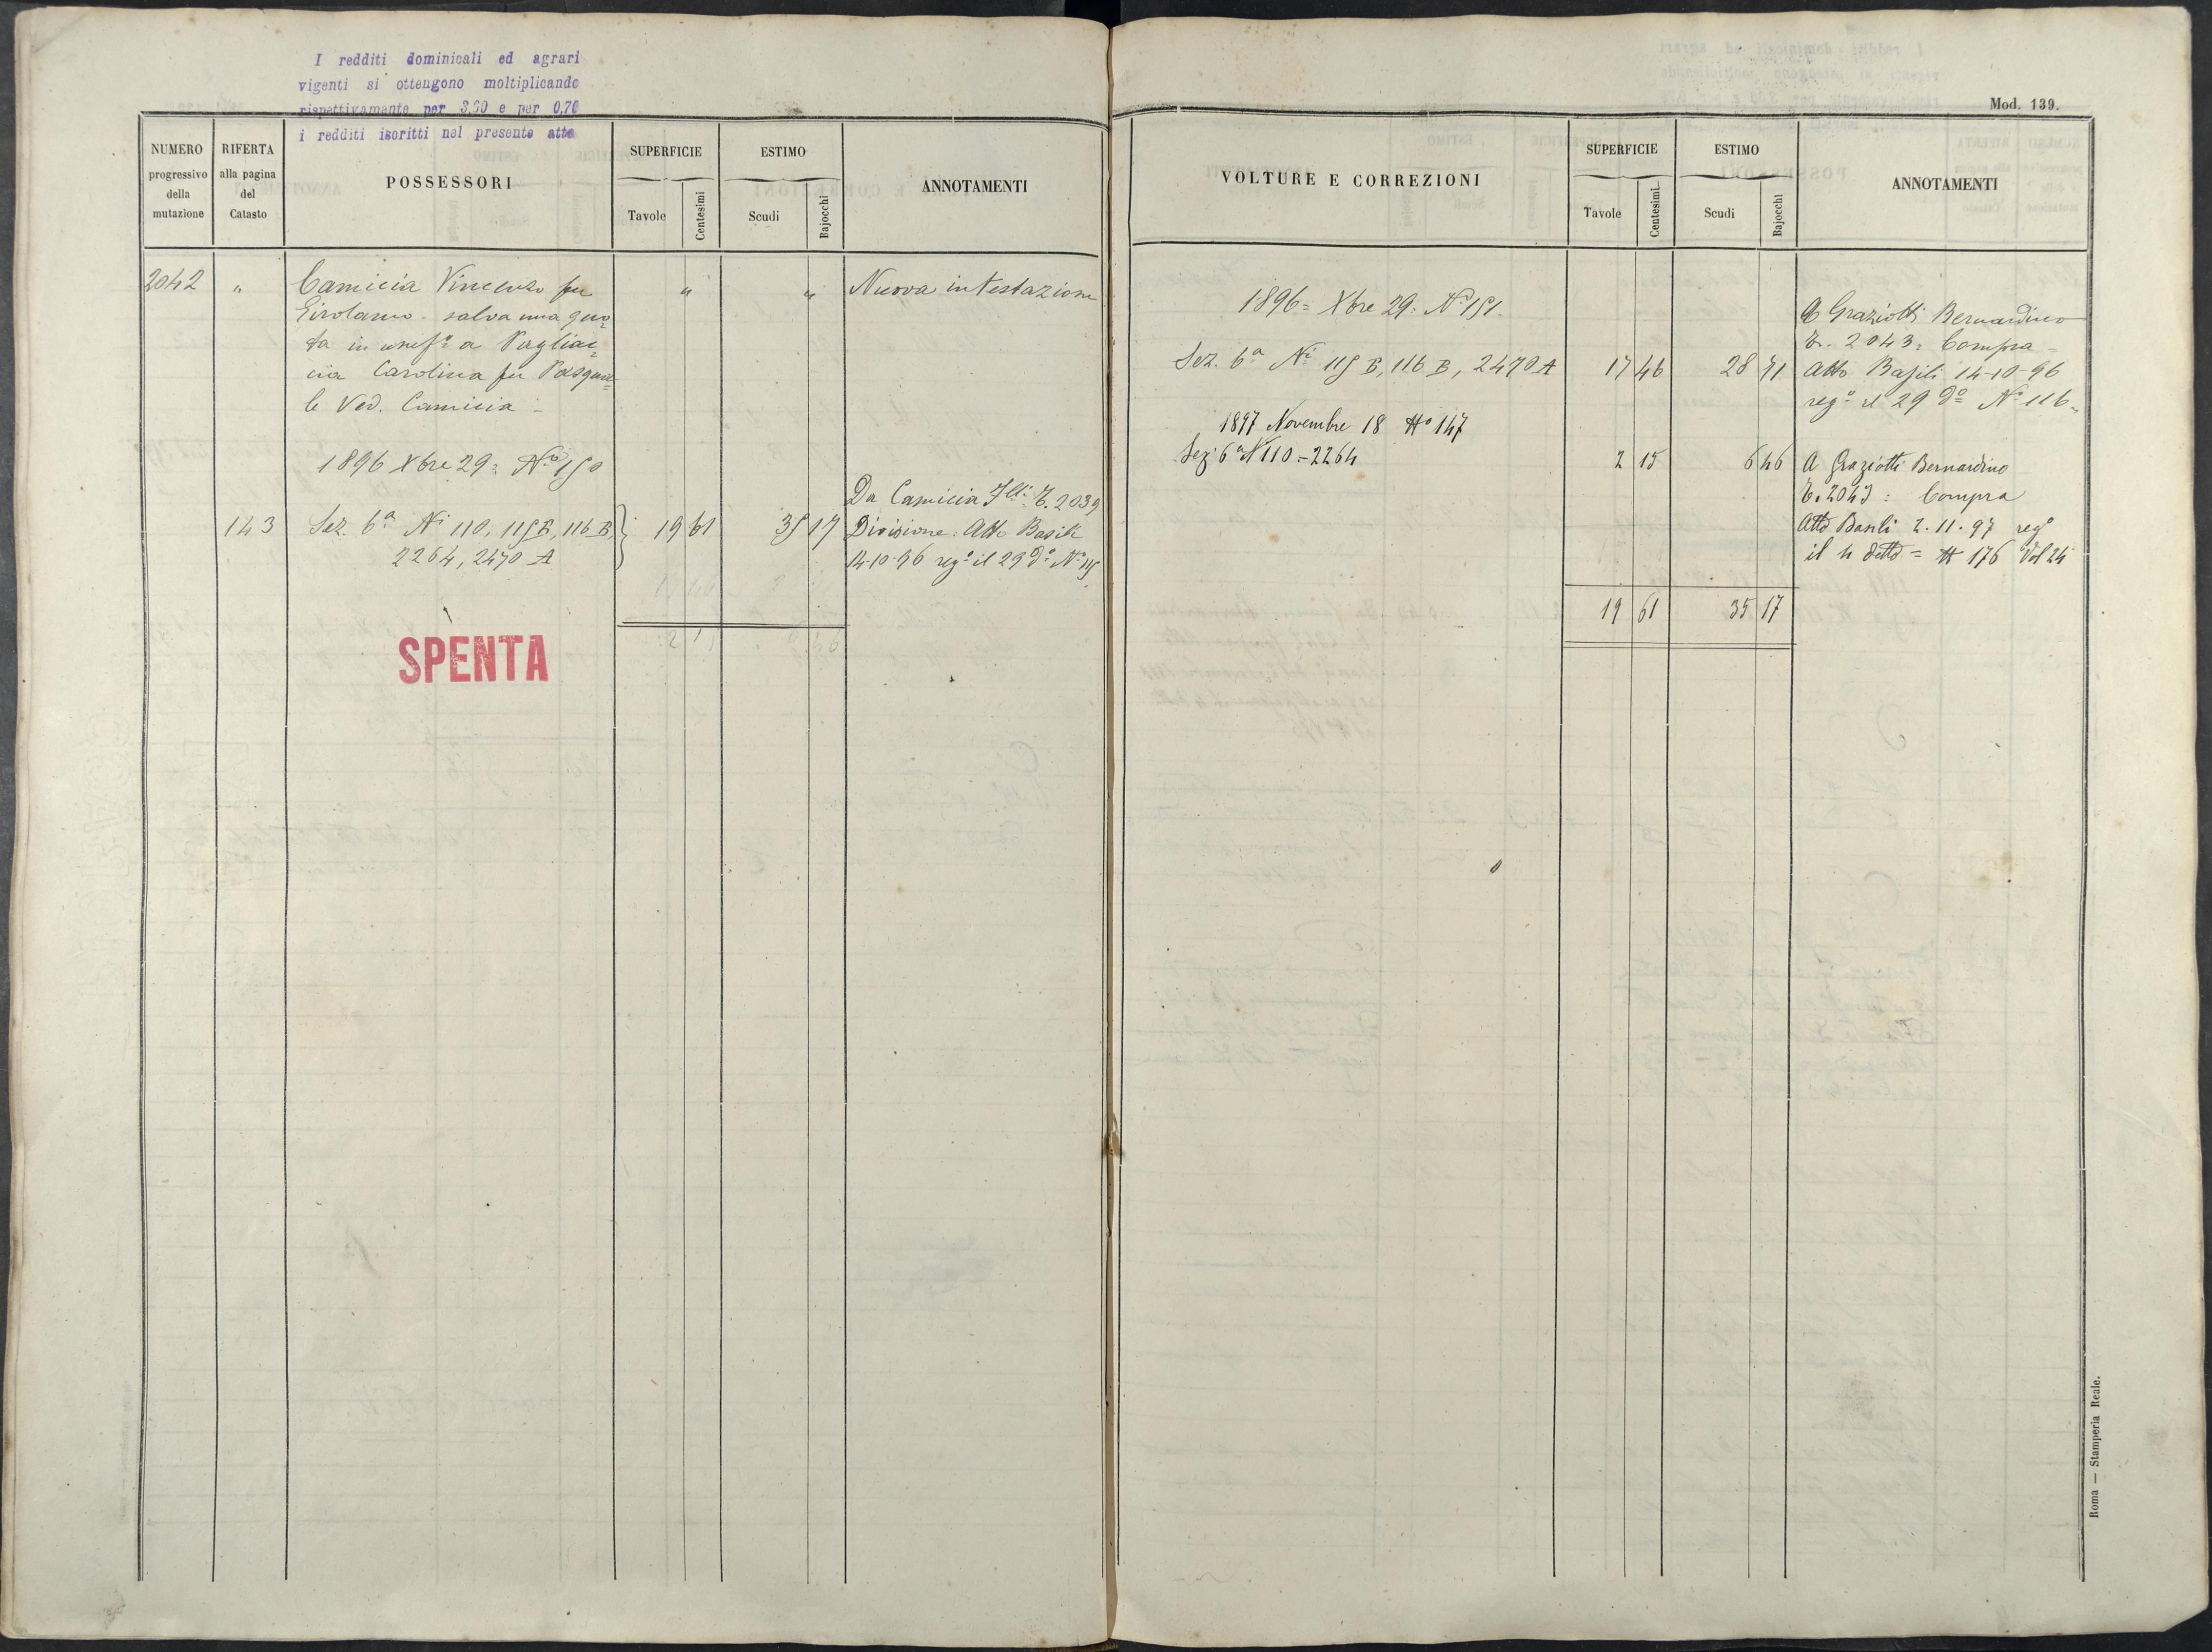 I redditi dominicali ed agrari
vigenti si ottengono moltiplicando
rispettivamente per 3,60 e per 0,70
i redditi iscritti nel presente atto
NUMERO progressivo della mutazione
RIFERTA alla pagina del Catasto
POSSESSORI
SUPERFICIE
Tavole Centesimi
ESTIMO
Scudi Bajocchi
ANNOTAMENTI
2042 " Camicia Vincenzo fu " " Nuova intestazione
Girolamo - salva una quo=
ta in usuf.º a Pagliac=
cia Carolina fu Pasqua=
le Ved. Camicia -
1896 Xbre 29: Nº 150
Da Camicia Flli: T. 2039
143 Sez. 6ª Ni 110, 115 B, 116 B, 19 61 35 17 Divisione: Atto Basili
2264, 2470 A 14-10-96 reg.º il 29 dº Nº 115
SPENTA
Mod. 139.
VOLTURE E CORREZIONI
SUPERFICIE
Tavole Centesimi
ESTIMO
Scudi Bajocchi
ANNOTAMENTI
1896= Xbre 29: Nº 151.
A Graziotti Bernardino
T. 2043: Compra =
Sez. 6ª Ni 115 B, 116 B, 2470 A 17 46 28 71 Atto Basili 14-10-96
reg.º il 29 dº Nº 116.
1897 Novembre 18 Nº 147
Sez. 6ª N 110 - 2264 2 15 6 46 A Graziotti Bernardino
T. 2043 : Compra
Atto Basili 2. 11. 97 regº
il 4 detto = N 176 Vol 24
19 61 35 17
Roma — Stamperia Reale.